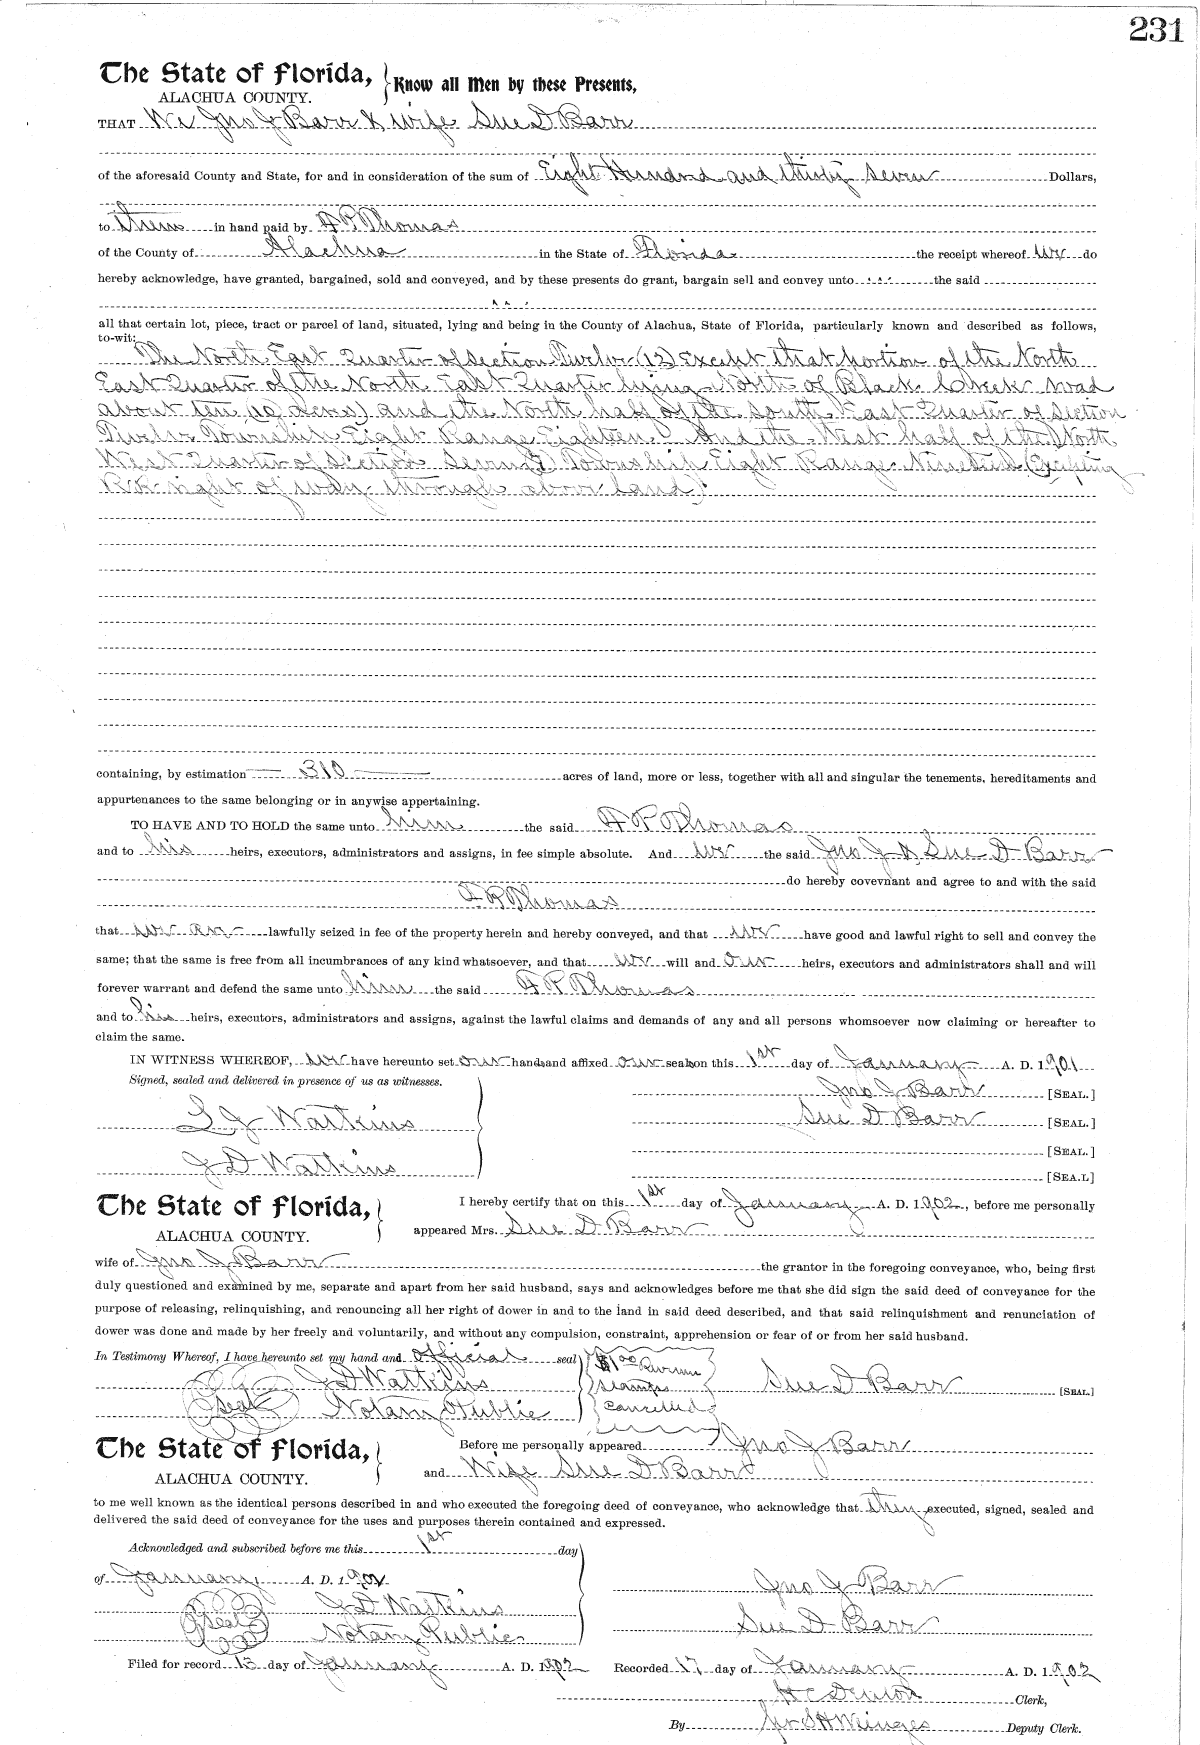 231
The State of Florida,
ALACHUA COUNTY.
Know all Men by these Presents,
THAT We Jno J Barr & wife Sue D Barr
of the aforesaid County and State, for and in consideration of the sum of Eight Hundred and thirty seven Dollars,
to them in hand paid by A P Thomas
of the County of Alachua in the State of Florida the receipt whereof we do
hereby acknowledge, have granted, bargained, sold and conveyed, and by these presents do grant, bargain sell and convey unto the said
all that certain lot, piece, tract or parcel of land, situated, lying and being in the County of Alachua, State of Florida, particularly known and described as follows,
to-wit:
The North East Quarter of section Twelve (12) Except that portion of the North
East Quarter of the North East Quarter lying North of Black Creek road
about ten (10 Acres) and the North half of the South East Quarter of Section
Twelve Township Eight Range Eighteen. And the West half of the North
West Quarter of Section Seven (7) Township Eight Range Nineteen (Excepting
RR right of way through above land).
containing, by estimation 310 acres of land, more or less, together with all and singular the tenements, hereditaments and
appurtenances to the same belonging or in anywise appertaining.
TO HAVE AND TO HOLD the same unto him the said A P Thomas
and to his heirs, executors, administrators and assigns, in fee simple absolute. And we the said Jno J & Sue D Barr
do hereby covevnant and agree to and with the said
A P Thomas
that we are lawfully seized in fee of the property herein and hereby conveyed, and that we have good and lawful right to sell and convey the
same; that the same is free from all incumbrances of any kind whatsoever, and that we will and our heirs, executors and administrators shall and will
forever warrant and defend the same unto him the said A P Thomas
and to his heirs, executors, administrators and assigns, against the lawful claims and demands of any and all persons whomsoever now claiming or hereafter to
claim the same.
IN WITNESS WHEREOF, we have hereunto set our hands and affixed our seals on this 1st day of January A. D. 1901
Signed, sealed and delivered in presence of us as witnesses.
Jno J Barr [SEAL.]
L J Watkins
Sue D Barr [SEAL.]
[SEAL.]
J D Watkins
[SEA.L]
The State of Florida,
ALACHUA COUNTY.
I hereby certify that on this 1st day of January A. D. 1902, before me personally
appeared Mrs. Sue D Barr
wife of Jno J Barr the grantor in the foregoing conveyance, who, being first
duly questioned and examined by me, separate and apart from her said husband, says and acknowledges before me that she did sign the said deed of conveyance for the
purpose of releasing, relinquishing, and renouncing all her right of dower in and to the land in said deed described, and that said relinquishment and renunciation of
dower was done and made by her freely and voluntarily, and without any compulsion, constraint, apprehension or fear of or from her said husband.
In Testimony Whereof, I have hereunto set my hand and official seal
J D Watkins
Seal Notary Public
$1.00 Revenue
stamps
cancelled
Sue D Barr [SEAL.]
The State of Florida,
ALACHUA COUNTY.
Before me personally appeared Jno J Barr
and Wife Sue D Barr
to me well known as the identical persons described in and who executed the foregoing deed of conveyance, who acknowledge that they executed, signed, sealed and
delivered the said deed of conveyance for the uses and purposes therein contained and expressed.
Acknowledged and subscribed before me this 1st day
of January, A. D. 1902
J D Watkins
Seal
Notary Public
Jno J Barr
Sue D Barr
Filed for record 13 day of January A. D. 1902 Recorded 17 day of January A. D. 1902
H C Denton Clerk,
By S H Wienges Deputy Clerk.